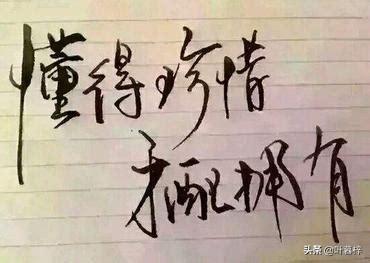 懂得珍惜
才配拥有
头条 @叶暮梓